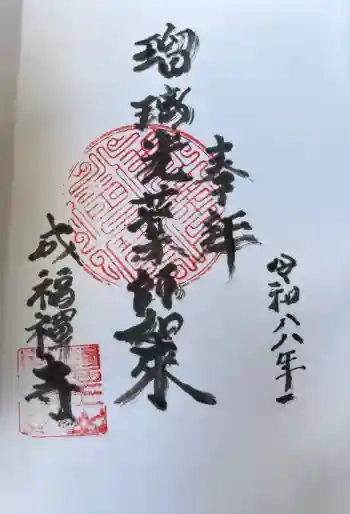 昭和八八年一
奉拝
瑠璃光薬師如来
成福禅寺